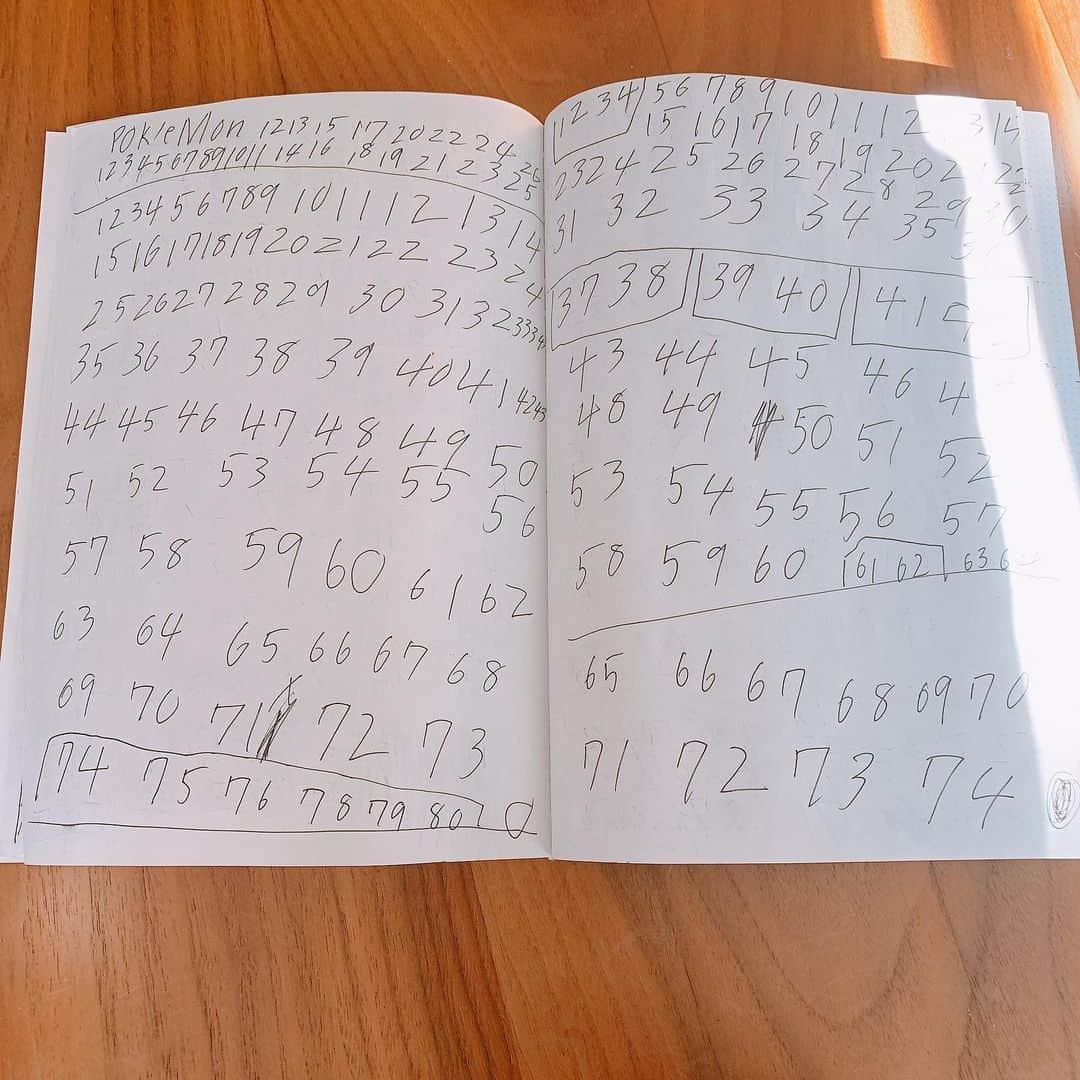 POKieMon 12 13 15 17 20 22 24 26
1 2 3 4 5 6 7 8 9 10 11 14 16 18 19 21 23 25
1 2 3 4 5 6 7 8 9 10 11 12 13 14
15 16 17 18 19 20 21 22 23 24
25 26 27 28 29 30 31 32 33 34
35 36 37 38 39 40 41 42 43
44 45 46 47 48 49 50
51 52 53 54 55 56
57 58 59 60 61 62
63 64 65 66 67 68
69 70 71 72 73
74 75 76 78 79 80
1 2 3 4 5 6 7 8 9 10 11 12 13 14
15 16 17 18 19 20 21 22
23 24 25 26 27 28 29 30
31 32 33 34 35
37 38 39 40 41
43 44 45 46
48 49 50 51 52
53 54 55 56 57
58 59 60 61 62 63
65 66 67 68 69 70
71 72 73 74